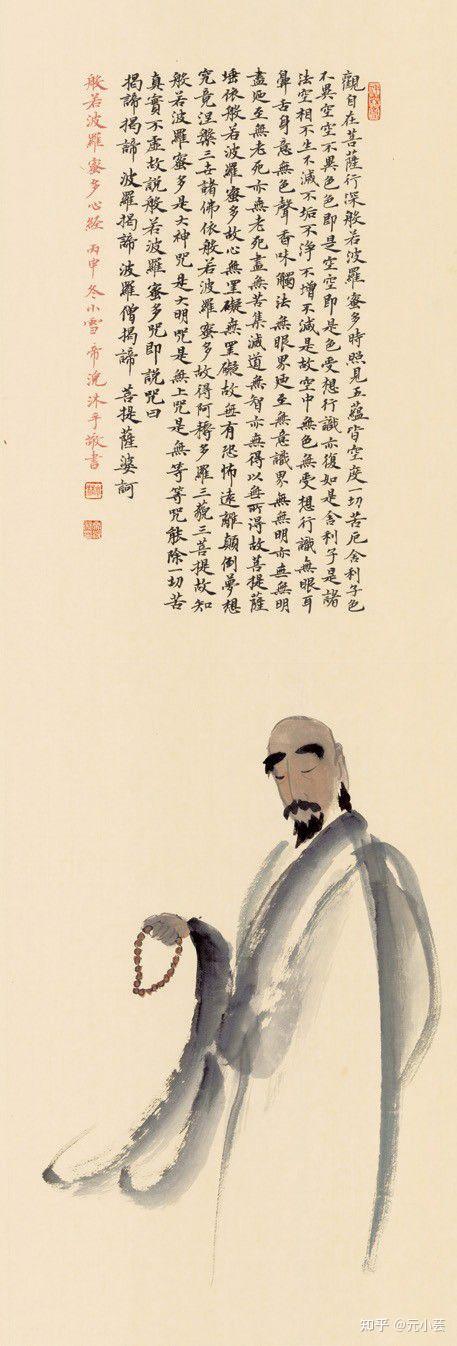 觀自在菩薩行深般若波羅蜜多時照見五蘊皆空度一切苦厄舍利子色
不異空空不異色色即是空空即是色受想行識亦復如是舍利子是諸
法空相不生不滅不垢不淨不增不減是故空中無色無受想行識無眼耳
鼻舌身意無色聲香味觸法無眼界廼至無意識界無無明亦無無明
盡廼至無老死亦無老死盡無苦集滅道無智亦無得以無所得故菩提薩
埵依般若波羅蜜多故心無罣礙無罣礙故無有恐怖遠離顛倒夢想
究竟涅槃三世諸佛依般若波羅蜜多故得阿耨多羅三藐三菩提故知
般若波羅蜜多是大神咒是大明咒是無上咒是無等等咒能除一切苦
真實不虛故說般若波羅蜜多咒即說咒曰
揭諦揭諦 波羅揭諦 波羅僧揭諦 菩提薩婆訶
般若波羅蜜多心経 丙申冬小雪 帝浣沐手敬書
知乎 @元小芸